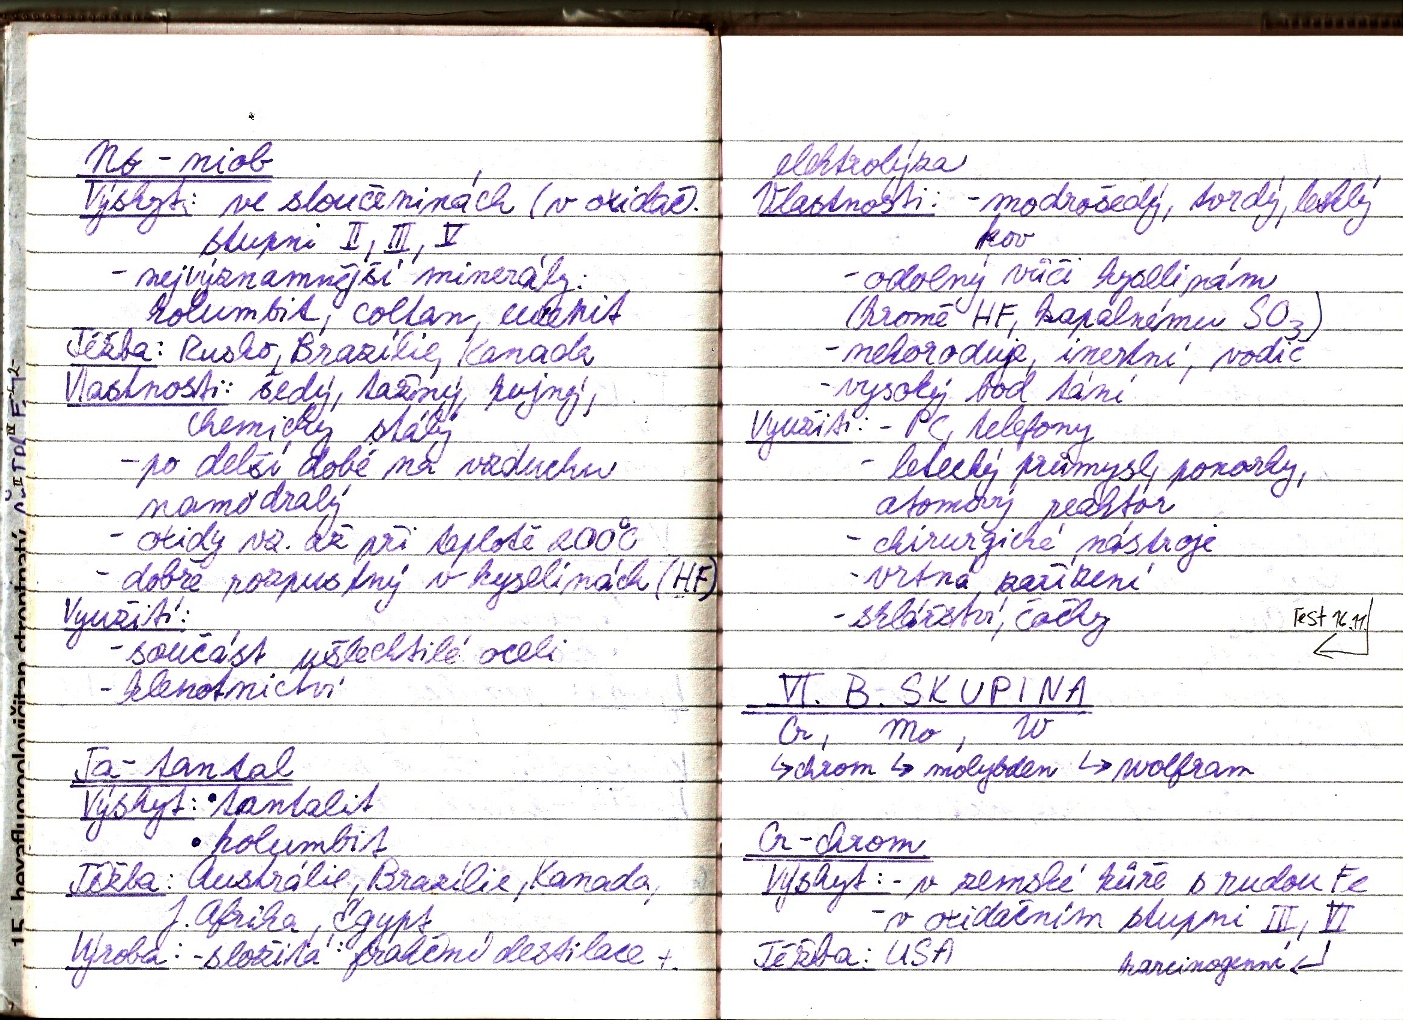 Nb - niob
Výskyt: ve sloučeninách (v oxidač.
stupni II, III, V
- nejvýznamnější minerály:
kolumbit, coltan, euxenit
Těžba: Rusko, Brazílie, Kanada
Vlastnosti: šedý, tažný, kujný,
chemicky stálý
- po delší době na vzduchu
namodralý
- oxidy vz. až při teplotě 200°C
- dobře rozpustný v kyselinách (HF)
Využití:
- součást ušlechtilé oceli
- klenotnictví
Ta - tantal
Výskyt: • tantalit
• kolumbit
Těžba: Austrálie, Brazílie, Kanada,
J. Afrika, Egypt
Výroba: - složitá: frakční destilace +
elektrolýza
Vlastnosti: - modrošedý, tvrdý, lesklý
kov
- odolný vůči kyselinám
(kromě HF, kapalnému SO3)
- nekoroduje, inertní, vodič
- vysoký bod tání
Využití: - PC, telefony
- letecký průmysl, ponorky,
atomový reaktor
- chirurgické nástroje
- vrtná zařízení
- sklářství, čočky
Test 16.11
VI. B. SKUPINA
Cr, Mo, W
↳ chrom ↳ molybden ↳ wolfram
Cr - chrom
Výskyt: - v zemské kůře s rudou Fe
- v oxidačním stupni III, VI
Těžba: USA
karcinogenní
15. hexafluoroolovičitan strontnatý